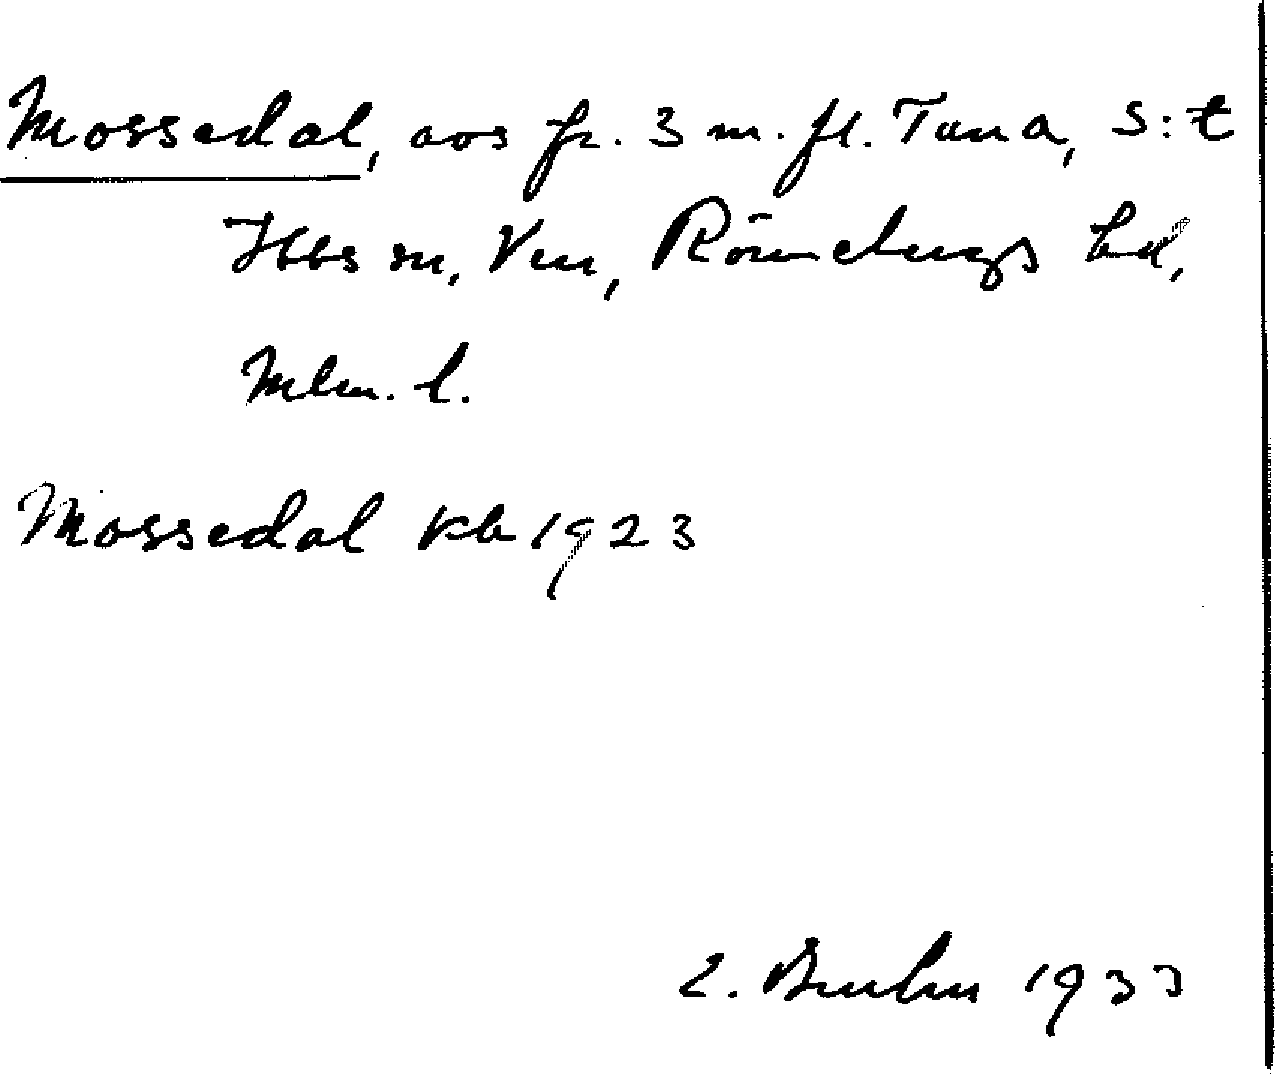 Mossedal, aos fr. 3 m. fl. Tuna, S:t
Ibbs sn, Ven, Rönnebergs hd,
Mlm. l.
Mossedal kb 1923
1933